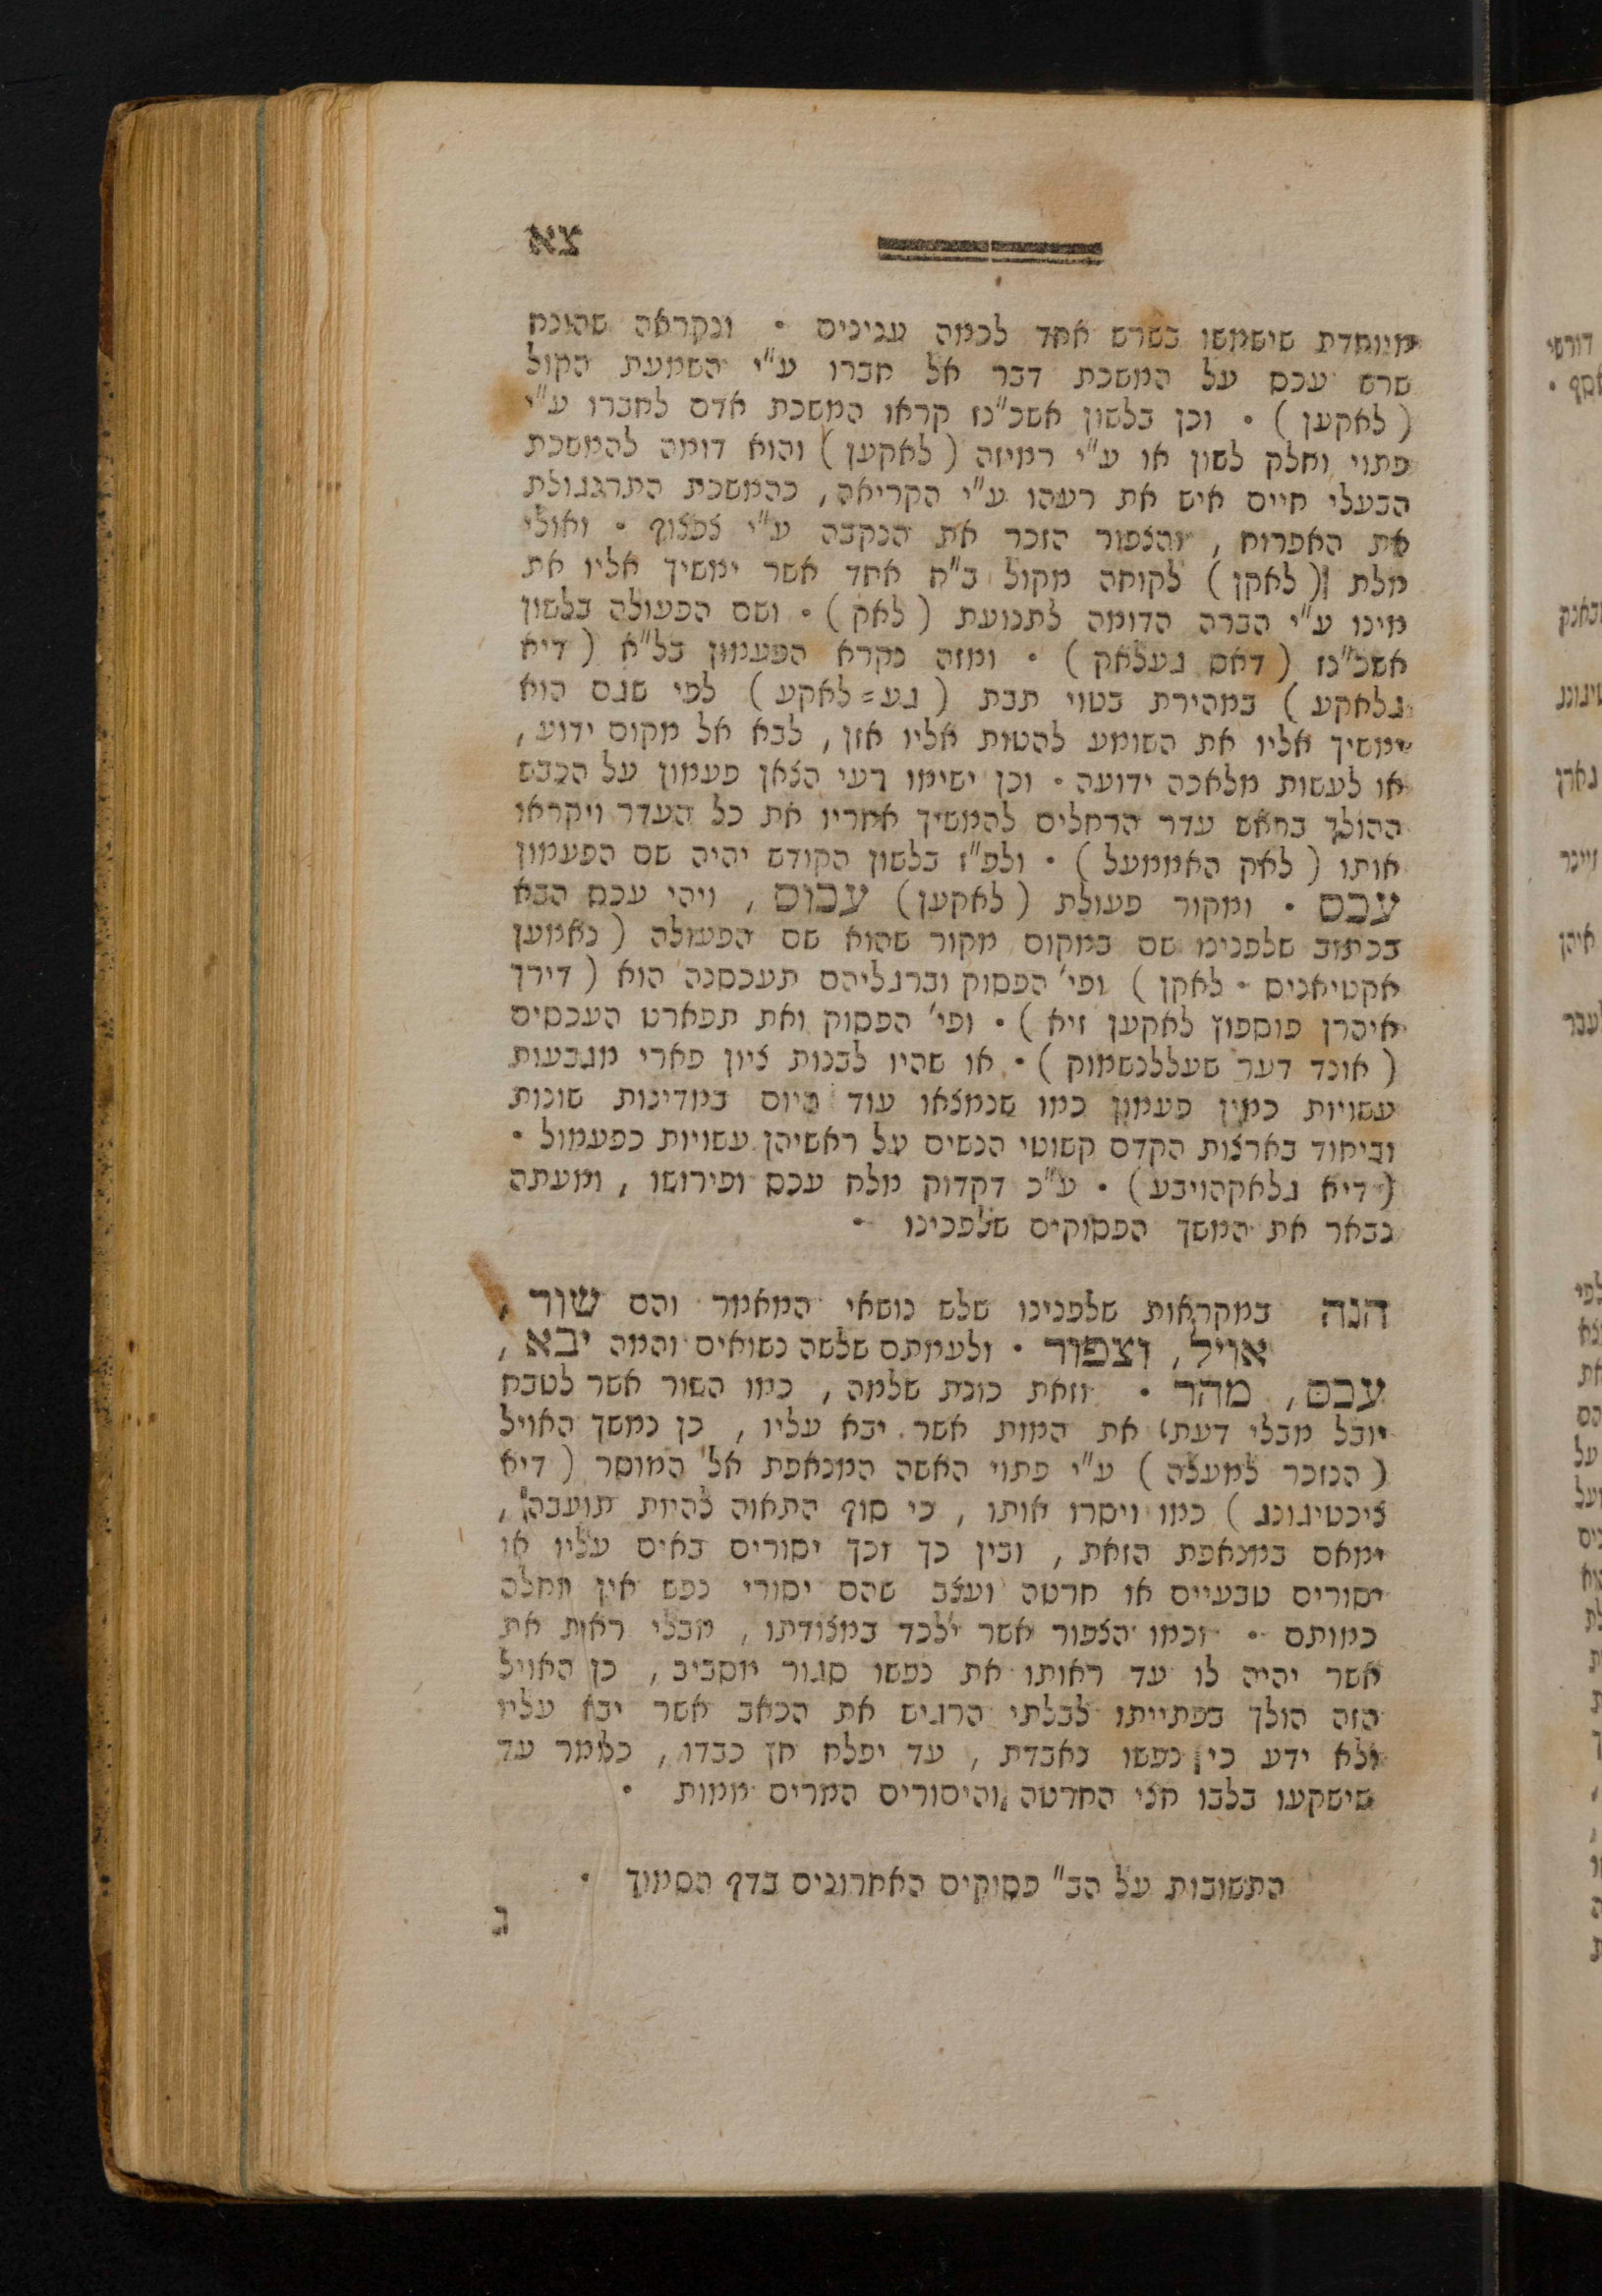 צא
מיוחדת שישמשו בשרש אחד לכמה ענינים • ונקראה שהונח
שרש עכס על המשכת דבר אל חברו ע"י השמעת הקול
(לאקען) • וכן בלשון אשכ"נז קראו המשכת אדם לחברו ע"י
פתוי וחלק לשון או ע"י רמיזה (לאקען) והוא דומה להמשכת
הבעלי חיים איש את רעהו ע"י הקריאה, כהמשכת התרנגולת
את האפרוח, והצפור הזכר את הנקבה ע"י צפצוף • ואולי
מלת (לאקן) לקוחה מקול ב"ח אחד אשר ימשיך אליו את
מינו ע"י הברה הדומה לתנועת (לאק) • ושם הפעולה בלשון
אשכ"נז (דאס געלאק) • ומזה נקרא הפעמון בל"א (דיא
גלאקע) במהירת בטוי תבת (גע=לאקע) לפי שגם הוא
ימשיך אליו את השומע להטות אליו אזן, לבא אל מקום ידוע,
או לעשות מלאכה ידועה • וכן ישימו רעי הצאן פעמון על הכבש
ההולך בראש עדר הרחלים להמשיך אחריו את כל העדר ויקראו
אותו (לאק האממעל) • ולפ"ז בלשון הקודש יהיה שם הפעמון
עכס • ומקור פעולת (לאקען) עכוס, ויהי עכס הבא
בכתוב שלפנינו שם במקום מקור שהוא שם הפעולה (נאמען
אקטיאניס • לאקן) ופי' הפסוק וברגליהם תעכסנה הוא (דירך
איהרן פוספוץ לאקען זיא) • ופי' הפסוק ואת תפארט העכסים
(אונד דער שעללנשמוק) • או שהיו לבנות ציון פארי מגבעות
עשויות כמין פעמון כמו שנמצאו עוד היום במדינות שונות
וביחוד בארצות הקדם קשוטי הנשים על ראשיהן עשויות כפעמול •
(דיא גלאקהויבע) • ע"כ דקדוק מלת עכס ופירושו, ומעתה
נבאר את המשך הפסוקים שלפנינו •
הנה במקראות שלפנינו שלש נושאי המאמר והם שור,
אויל, וצפור • ולעמתם שלשה נשואים והמה יבא,
עכס, מהר • וזאת כונת שלמה, כמו השור אשר לטבח
יובל מבלי דעתו את המות אשר יבא עליו, כן נמשך האויל
(הנזכר למעלה) ע"י פתוי האשה המנאפת אל המוסר (דיא
ציכטיגונג) כמו ויסרו אותו, כי סוף התאוה להיות תועבה,
ימאס במנאפת הזאת, ובין כך וכך יסורים באים עליו או
יסורים טבעיים או חרטה ועצב שהם יסורי נפש אין מחלה
כמותם • וכמו הצפור אשר ילכד במצודתו, מבלי ראות את
אשר יהיה לו עד ראותו את נפשו סגור מסביב, כן האויל
הזה הולך בפתייתו לבלתי הרגיש את הכאב אשר יבא עליו
ולא ידע כי נפשו נאבדת, עד יפלח חץ כבדו, כאמר עד
שישקעו בלבו חצי החרטה והיסורים המרים ממות •
התשובות על הב" פסוקים האחרונים בדף הסמוך •
ג